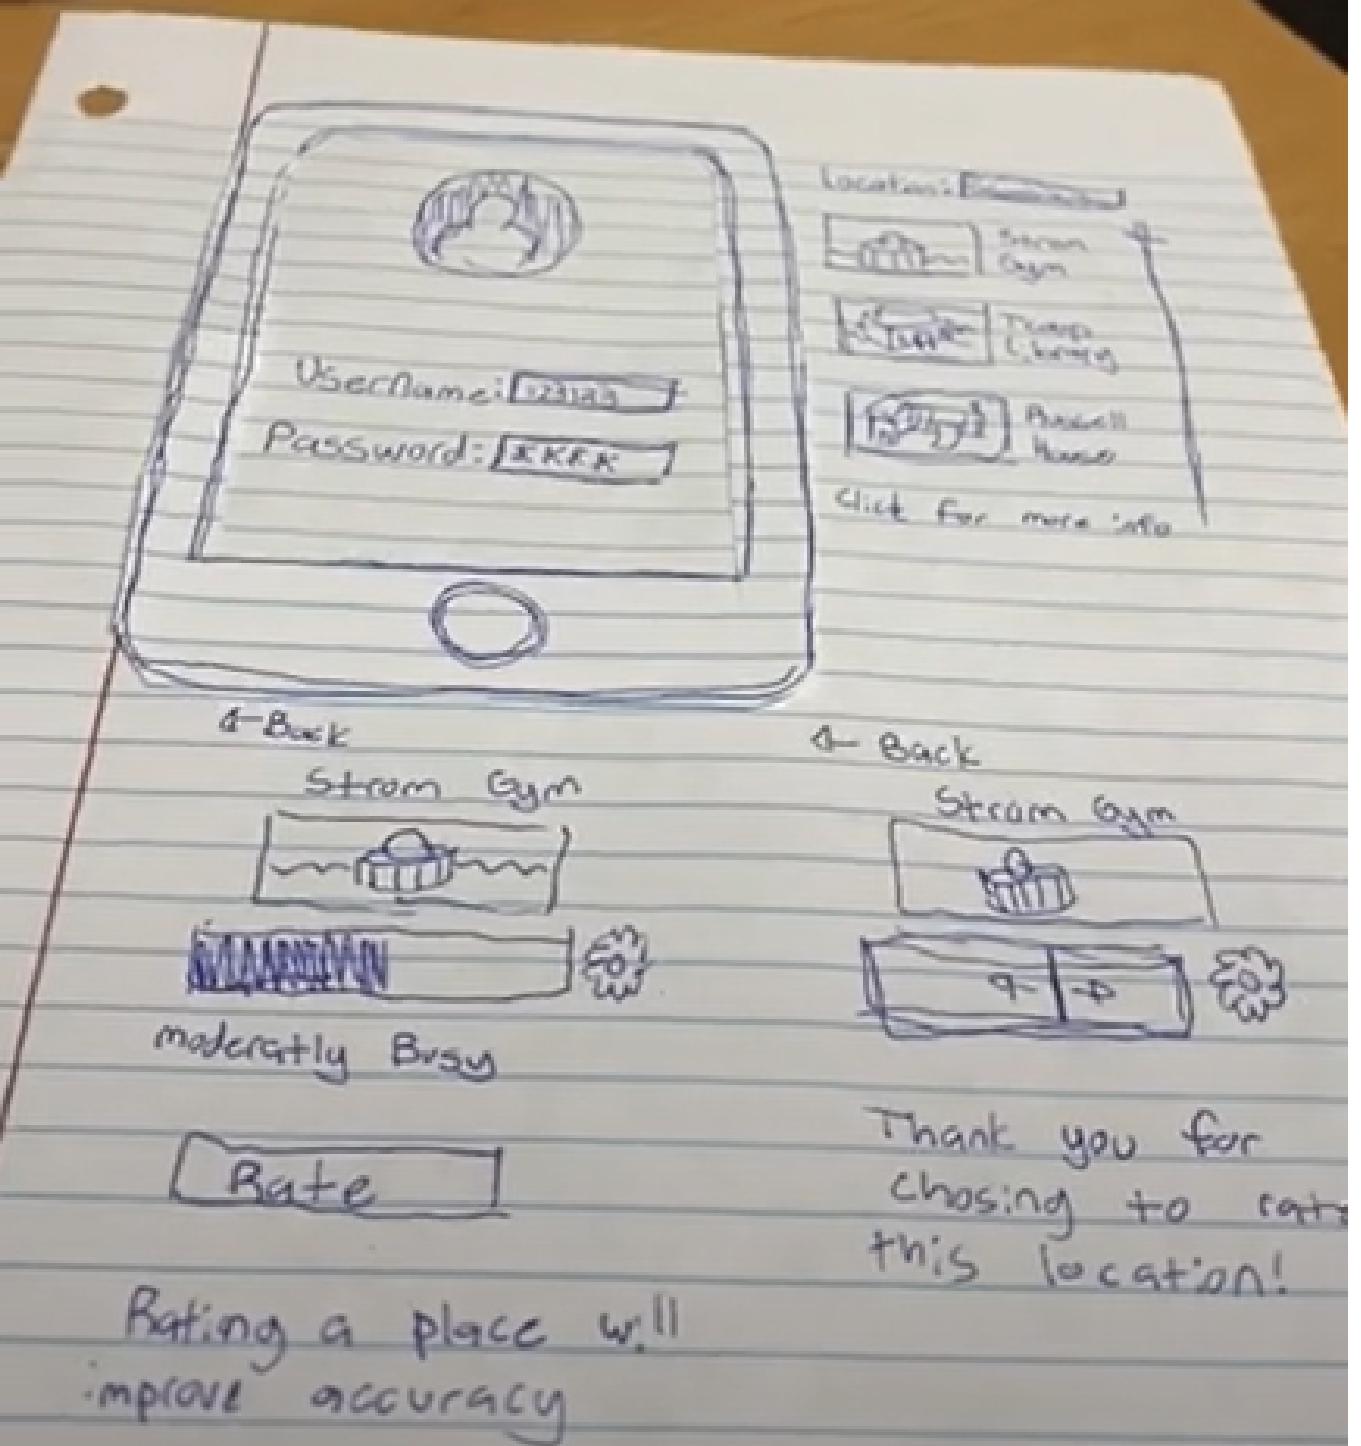 Username: 123123
Password: XKKK
Location:
Strom
Gym
Library
Russell
House
Click for more info
Back
Strom Gym
moderatly Busy
Rate
Rating a place will
improve accuracy
Back
Strom Gym
Thank you for
chosing to rate
this location!